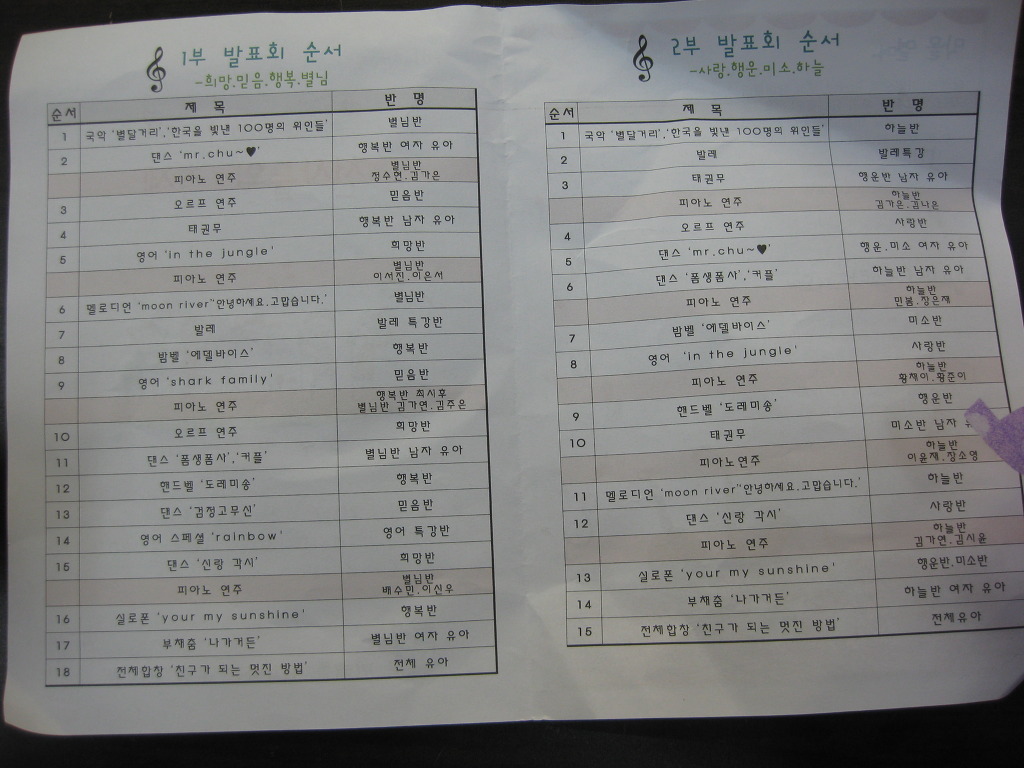 1부 발표회 순서
-희망.믿음.행복.별님
순서 제 목 반 명
1 국악 '별달거리','한국을 빛낸 100명의 위인들' 별님반
2 댄스 'mr.chu~♥' 행복반 여자 유아
피아노 연주 별님반
정수현.김가은
3 오르프 연주 믿음반
4 태권무 행복반 남자 유아
5 영어 'in the jungle' 희망반
피아노 연주 별님반
이서진.이은서
6 멜로디언 'moon river''안녕하세요.고맙습니다.' 별님반
7 발레 발레 특강반
8 밤벨 '에델바이스' 행복반
9 영어 'shark family' 믿음반
피아노 연주 행복반 최시후
별님반 김가연.김주은
10 오르프 연주 희망반
11 댄스 '폼생폼사','커플' 별님반 남자 유아
12 핸드벨 '도레미송' 행복반
13 댄스 '검정고무신' 믿음반
14 영어 스페셜 'rainbow' 영어 특강반
15 댄스 '신랑 각시' 희망반
피아노 연주 별님반
배수민.이신우
16 실로폰 'your my sunshine' 행복반
17 부채춤 '나가거든' 별님반 여자 유아
18 전체합창 '친구가 되는 멋진 방법' 전체 유아
2부 발표회 순서
-사랑.행운.미소.하늘
순서 제 목 반 명
1 국악 '별달거리','한국을 빛낸 100명의 위인들' 하늘반
2 발레 발레특강
3 태권무 행운반 남자 유아
피아노 연주 하늘반
김가은.김나은
4 오르프 연주 사랑반
5 댄스 'mr.chu~♥' 행운.미소 여자 유아
6 댄스 '폼생폼사','커플' 하늘반 남자 유아
피아노 연주 하늘반
민봄.장은재
7 밤벨 '에델바이스' 미소반
8 영어 'in the jungle' 사랑반
피아노 연주 하늘반
황채이.황준이
9 핸드벨 '도레미송' 행운반
10 태권무 미소반 남자
피아노연주 하늘반
이윤재.장소영
11 멜로디언 'moon river''안녕하세요.고맙습니다.' 하늘반
12 댄스 '신랑 각시' 사랑반
피아노 연주 하늘반
김가연.김시윤
13 실로폰 'your my sunshine' 행운반.미소반
14 부채춤 '나가거든' 하늘반 여자 유아
15 전체합창 '친구가 되는 멋진 방법' 전체유아